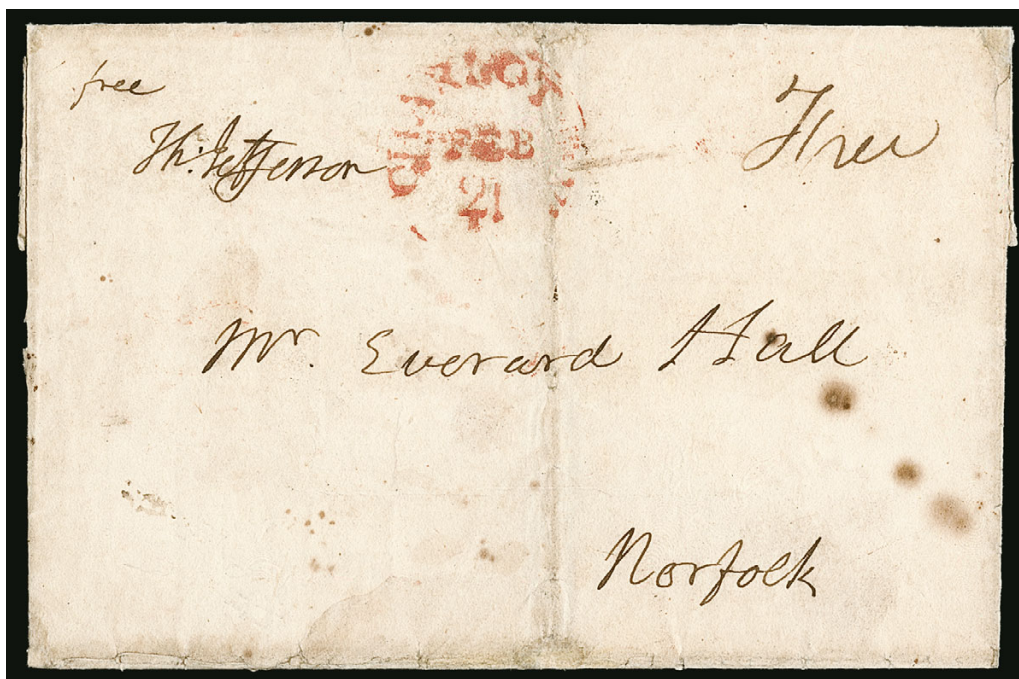 free
Th: Jefferson
FEB
21
Free
Mr. Everard Hall
Norfolk